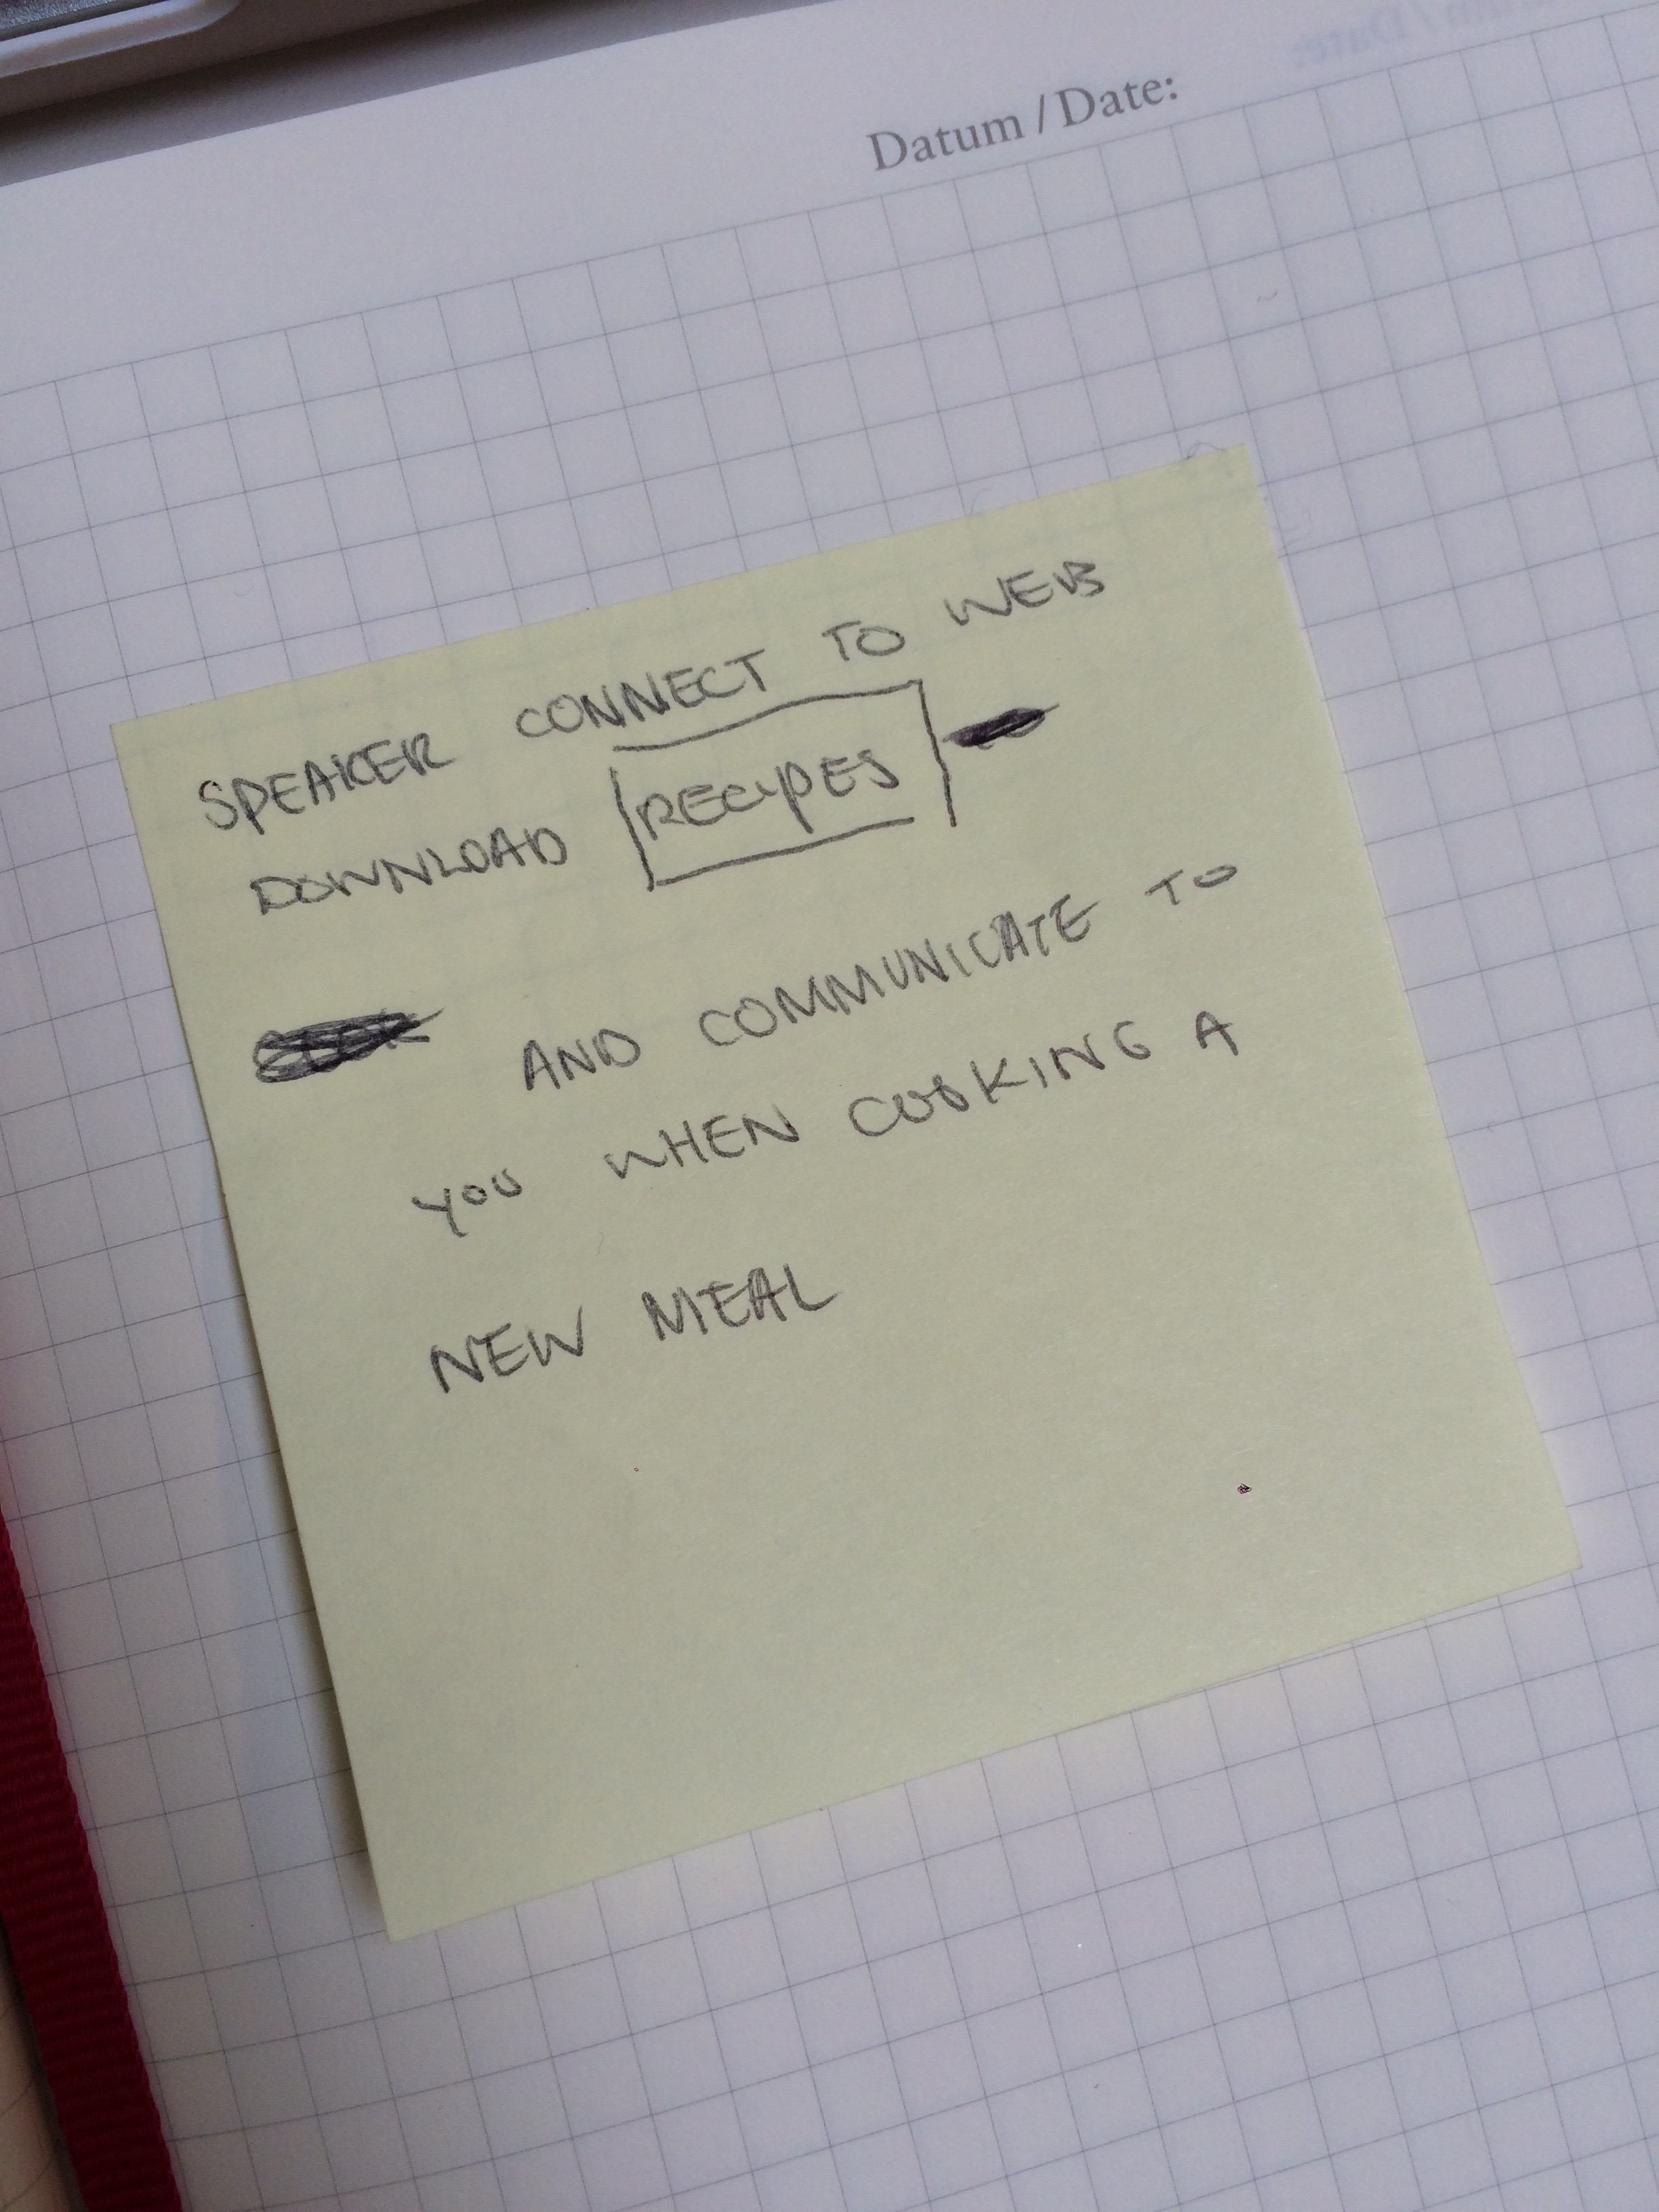 Datum / Date:
SPEAKER CONNECT TO WEB
DOWNLOAD RECIPES
AND COMMUNICATE TO
YOU WHEN COOKING A
NEW MEAL